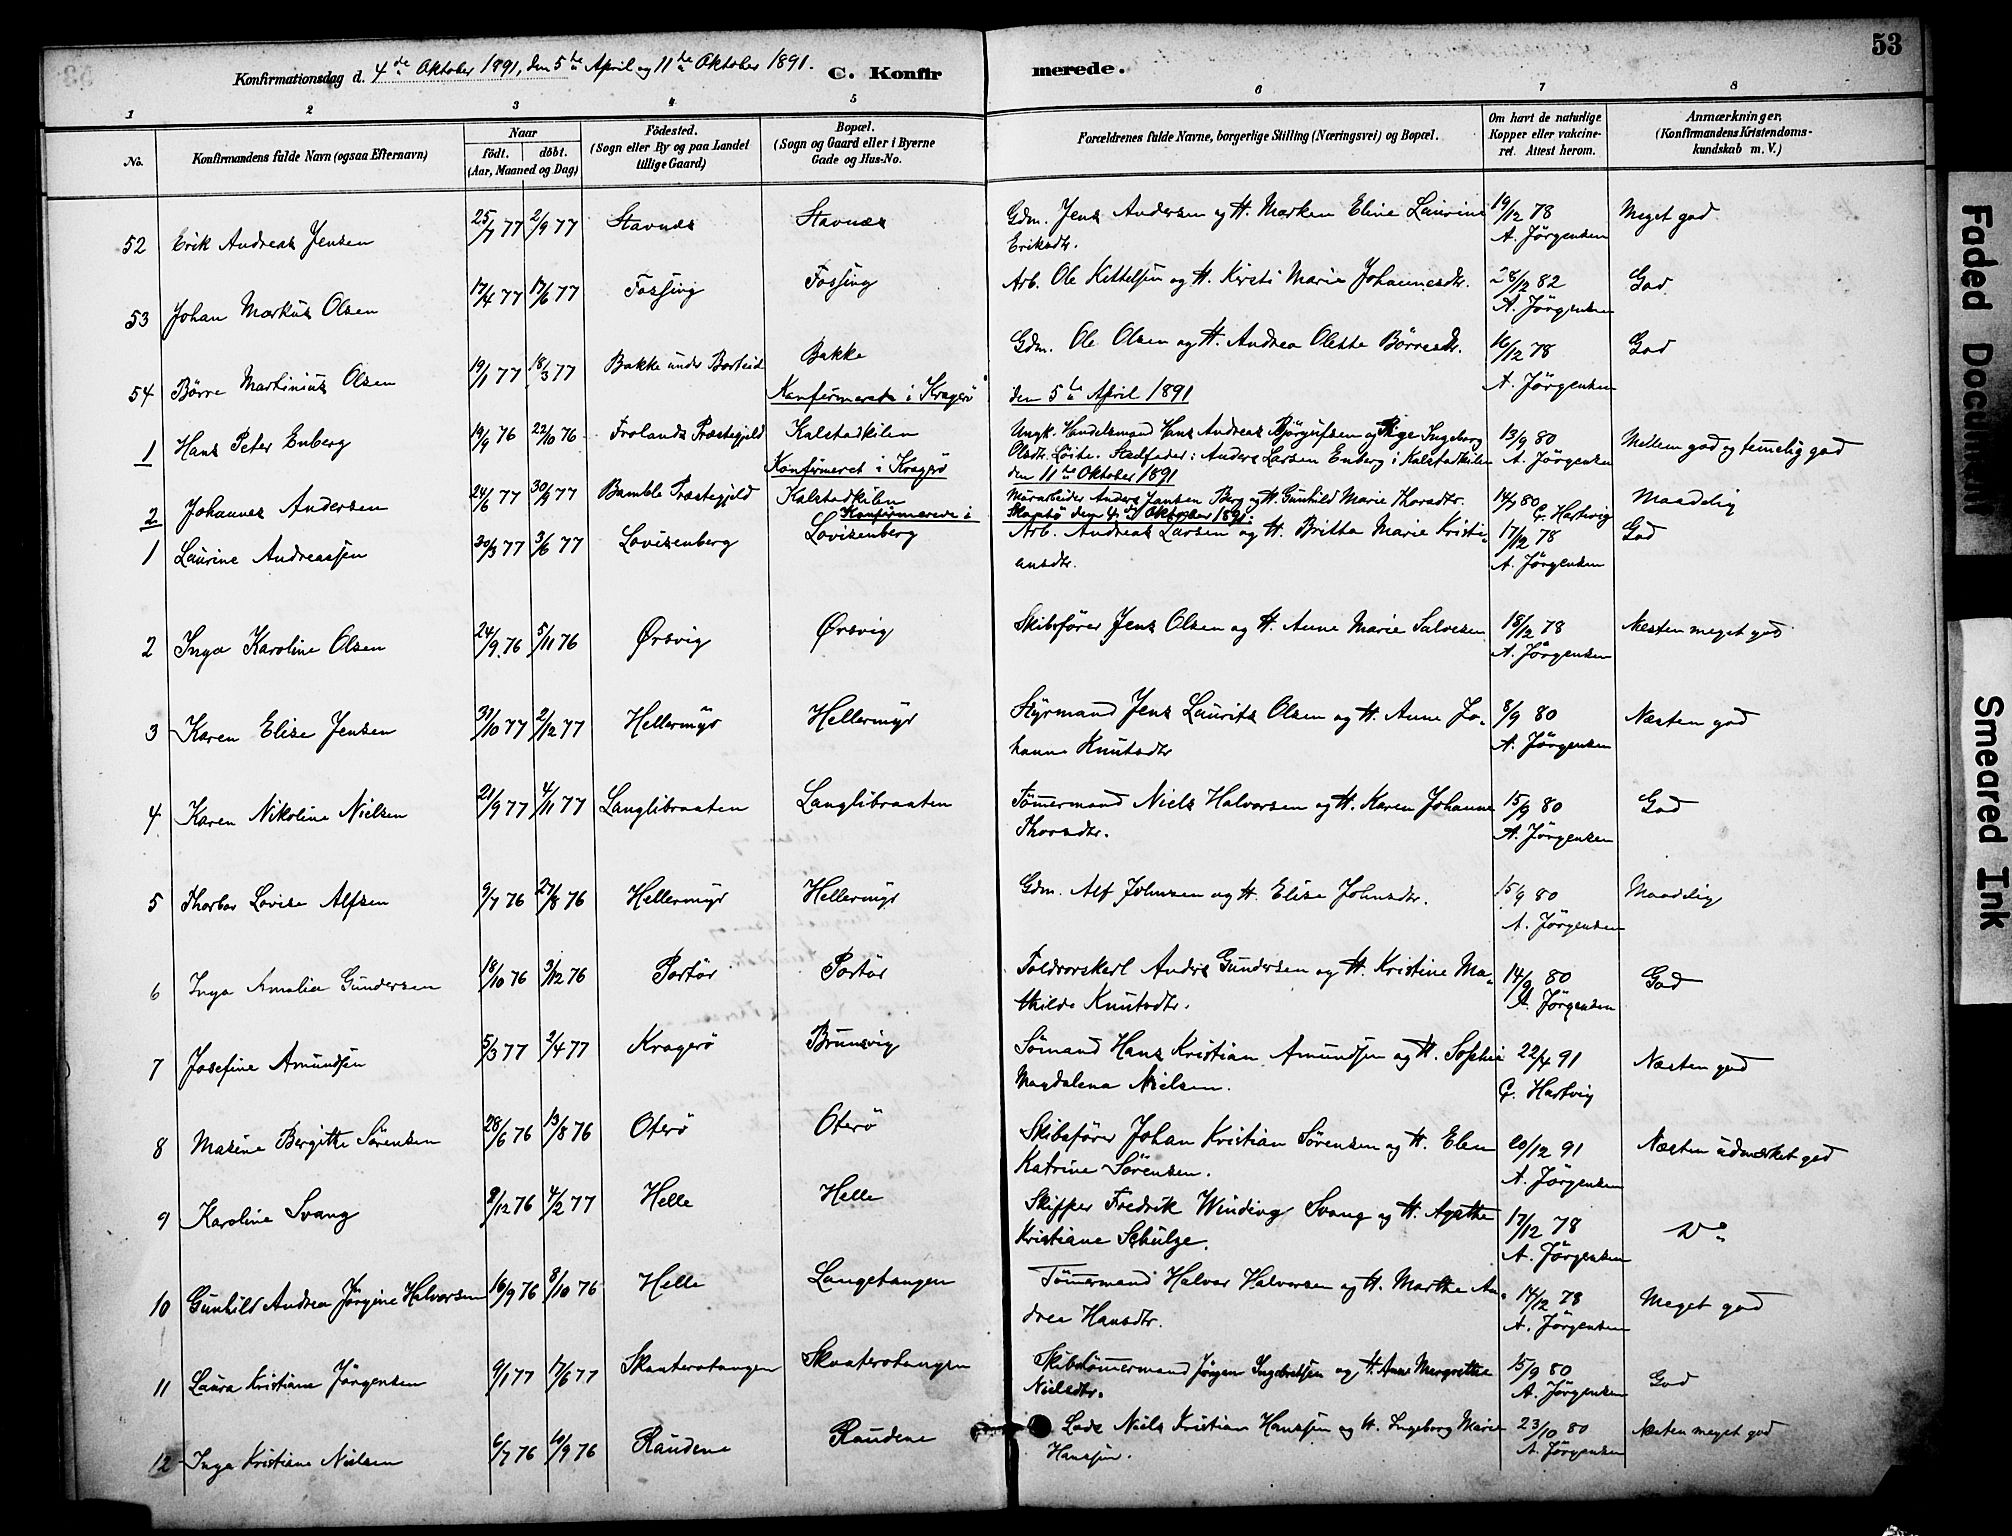 53
Konfirmationsdag d. 4de Oktober 1891, den 5te April og 11te Oktober 1891. C. Konfirmerede.
1 2 3 4 5 6 7 8
No. Konfirmandens fulde Navn (ogsaa Efternavn) Naar født. døbt. (Aar, Maaned og Dag) Fødested. (Sogn eller By og paa Landet tillige Gaard) Bopæl. (Sogn og Gaard eller i Byerne Gade og Hus-No. Forældrenes fulde Navne, borgerlige Stilling (Næringsvei) og Bopæl. Om havt de naturlige Kopper eller vakcineret. Attest herom. Anmærkninger, (Konfirmandens Kristendomskundskab m. V.)
52 Erik Andreas Jensen 25/7 77 2/9 77 Stavnes Stavnæs Gdm. Jens Andersen og H. Marken Eline Laurine 19/12 78 Meget god
Eriksdtr. A. Jörgensen
53 Johan Markus Olsen 17/4 77 17/6 77 Fossing Fossing Arb. Ole Kittelsen og H. Kirsti Marie Johannesdtr. 28/12 82 God
A. Jörgensen
54 Börre Martinius Olsen 19/1 77 18/3 77 Bakke under Barteid Bakke Gdm. Ole Olsen og H. Andrea Oleste Börresdtr. 16/12 78 God
A. Jörgensen
Konfirmeret i Kragerø den 5te April 1891
1 Hans Peter Enberg 19/9 76 22/10 76 Frolands Præstegjeld Kalstadkilen Ungk. Handelsmand Hans Andreas Björgufsen og Pige Ingeborg 13/9 80 Mellem god og temelig god
Olsdtr. Löite. Stedfader: Anders Larsen Enberg i Kalstadkilen A. Jörgensen
Konfirmeret i Kragerø den 11te Oktober 1891
2 Johannes Andersen 24/6 77 30/9 77 Bamble Præstegjeld Kalstadkilen Murarbeider Anders Jansen Berg og H. Gunhild Marie Thorsdtr. 14/9 80 Maadelig
C. Hartvig
Konfirmerede i Skaatö den 4de Oktober 1891.
1 Laurine Andreassen 30/3 77 3/6 77 Lovisenberg Lovisenberg Arb. Andreas Larsen og H. Britha Marie Kristi- 17/12 78 God
ansdtr. A. Jörgensen
2 Inga Karoline Olsen 24/9 76 5/11 76 Ørsvig Ørsvig Skibsförer Jens Olsen og H. Anne Marie Salvesen 18/12 78 Næsten meget god
A. Jörgensen
3 Karen Elise Jensen 31/10 77 2/12 77 Hellermyr Hellermyr Styrmand Jens Laurits Olsen og H. Anne Jo- 8/9 80 Næsten god
hanne Knutsdtr A. Jörgensen
4 Karen Nikoline Nielsen 21/9 77 4/11 77 Langlibraaten Langlibraaten Tömmermand Niels Halvorsen og H. Karen Johanne 15/9 80 God
Thorsdtr. A. Jörgensen
5 Thorbor Lovise Alfsen 9/7 76 27/8 76 Hellermyr Hellermyr Gdm. Alf Johnsen og H. Elise Johnsdtr. 15/9 80 Maadelig
A. Jörgensen
6 Inga Amalie Gundersen 18/10 76 3/12 76 Portör Portör Toldrorskarl Anders Gundersen og H. Kristine Ma- 14/9 80 God
thilde Knutsdtr. A. Jörgensen
7 Josefine Amundsen 5/3 77 2/4 77 Kragerö Brunsvig Sömand Hans Kristian Amundsen og H. Sophie 22/4 91 Næsten god
Magdalena Nielsen. C. Hartvig
8 Masine Bergitte Sörensen 28/6 76 13/8 76 Oterö Oterö Skibsförer Johan Kristian Sörensen og H. Elen 20/12 91 Næsten udmærket god
Katrine Sörensen. A. Jörgensen
9 Karoline Svang 9/12 76 4/2 77 Helle Helle Skipper Fredrik Winding Svang og H. Agathe 17/12 78
Kristiane Schulze. A. Jörgensen
10 Gunhild Andrea Jörgine Halvorsen 16/9 76 8/10 76 Helle Langetangen Tömmermand Halvor Halvorsen og H. Marthe An- 14/12 78 Meget god
drea Hansdtr. A. Jörgensen
11 Laura Kristiane Jörgensen 9/1 77 17/6 77 Skaaterstangen Skaaterstangen Skibstömmermand Jörgen Ingebretsen og H. Anne Margrethe 15/9 80 God
Nielsdtr. A. Jörgensen
12 Inga Kristiane Nielsen 6/7 76 10/9 76 Raudene Raudene Lods Niels Kristian Hanssen og H. Ingeborg Marie 23/10 80 Næsten meget god
Hanssen. A. Jörgensen
Faded Document
Smeared Ink